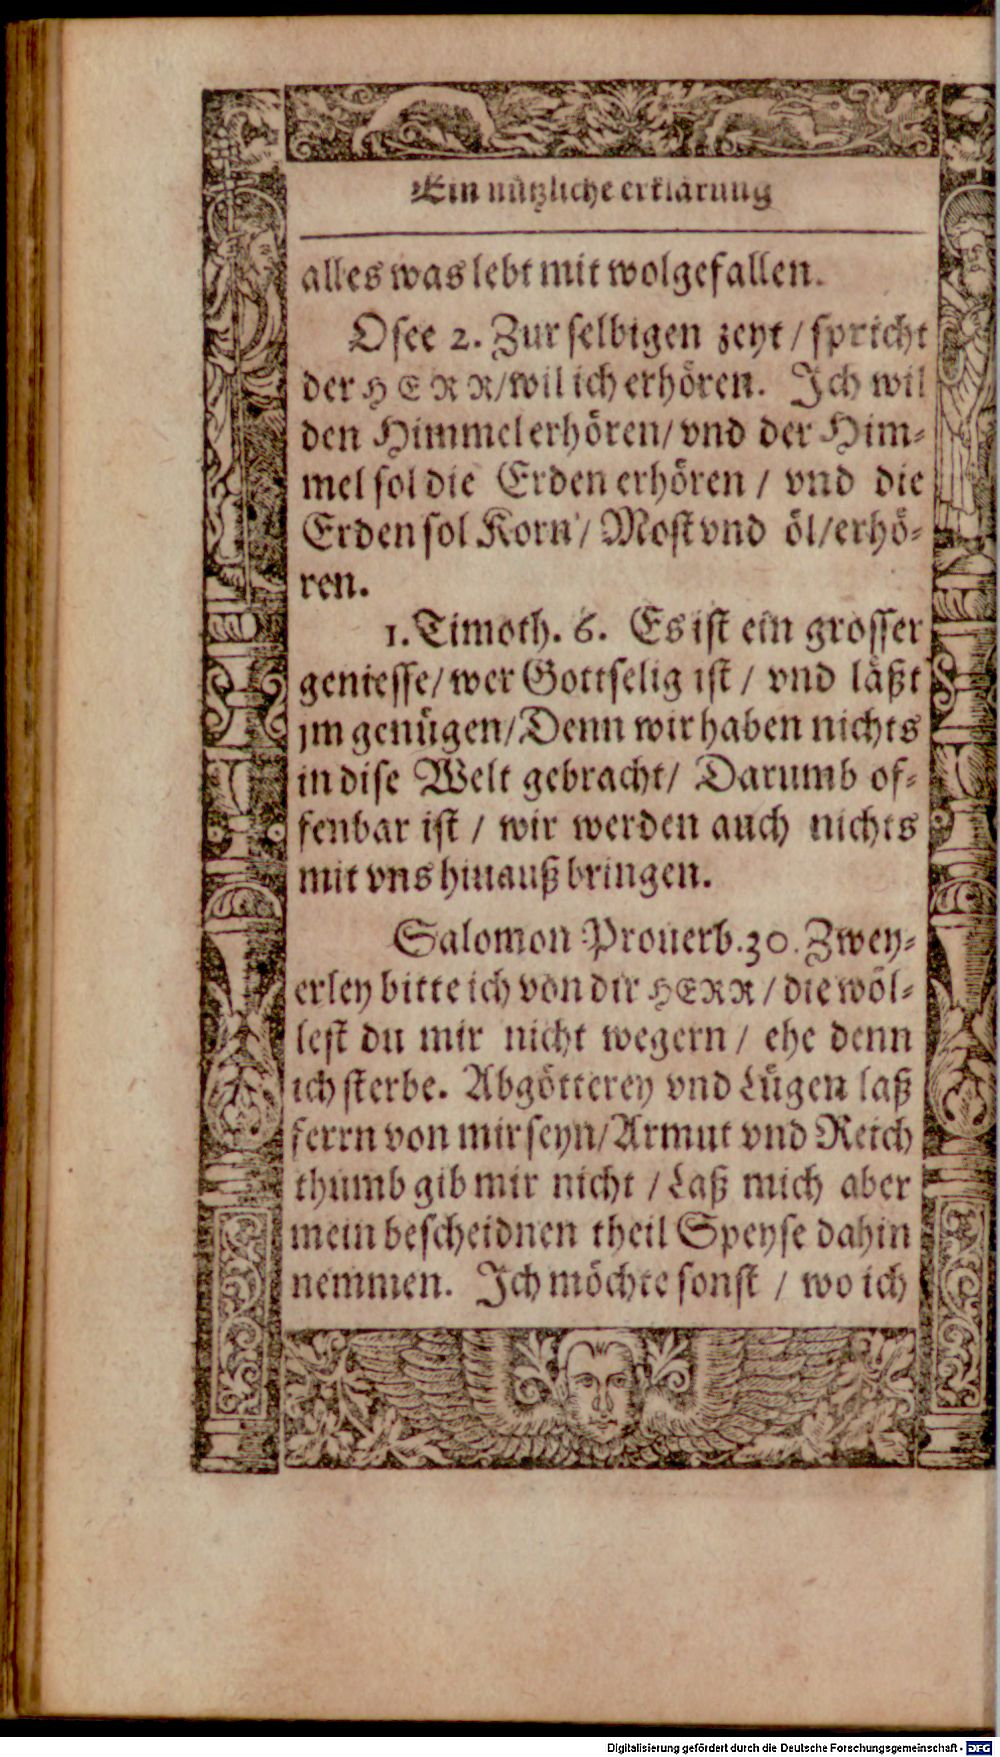 Ein nützliche erklärung
alles was lebt mit wolgefallen.
Osee 2. Zur selbigen zeyt / spricht
der HERR/wil ich erhören. Ich wil
den Himmel erhören/ vnd der Him-
mel sol die Erden erhören / vnd die
Erden sol Korn / Most vnd öl/erhö-
ren.
1. Timoth. 6. Es ist ein grosser
geniesse/ wer Gottselig ist / vnd läßt
jm genügen/Denn wir haben nichts
in dise Welt gebracht/ Darumb of-
fenbar ist / wir werden auch nichts
mit vns hinauß bringen.
Salomon Prouerb. 30. Zwey-
erley bitte ich von dir HERR / die wöl-
lest du mir nicht wegern / ehe denn
ich sterbe. Abgötterey vnd Lügen laß
ferrn von mir seyn/Armut vnd Reich
thumb gib mir nicht / Laß mich aber
mein bescheidnen theil Speyse dahin
nemmen. Ich möchte sonst / wo ich
Digitalisierung gefördert durch die Deutsche Forschungsgemeinschaft - DFG